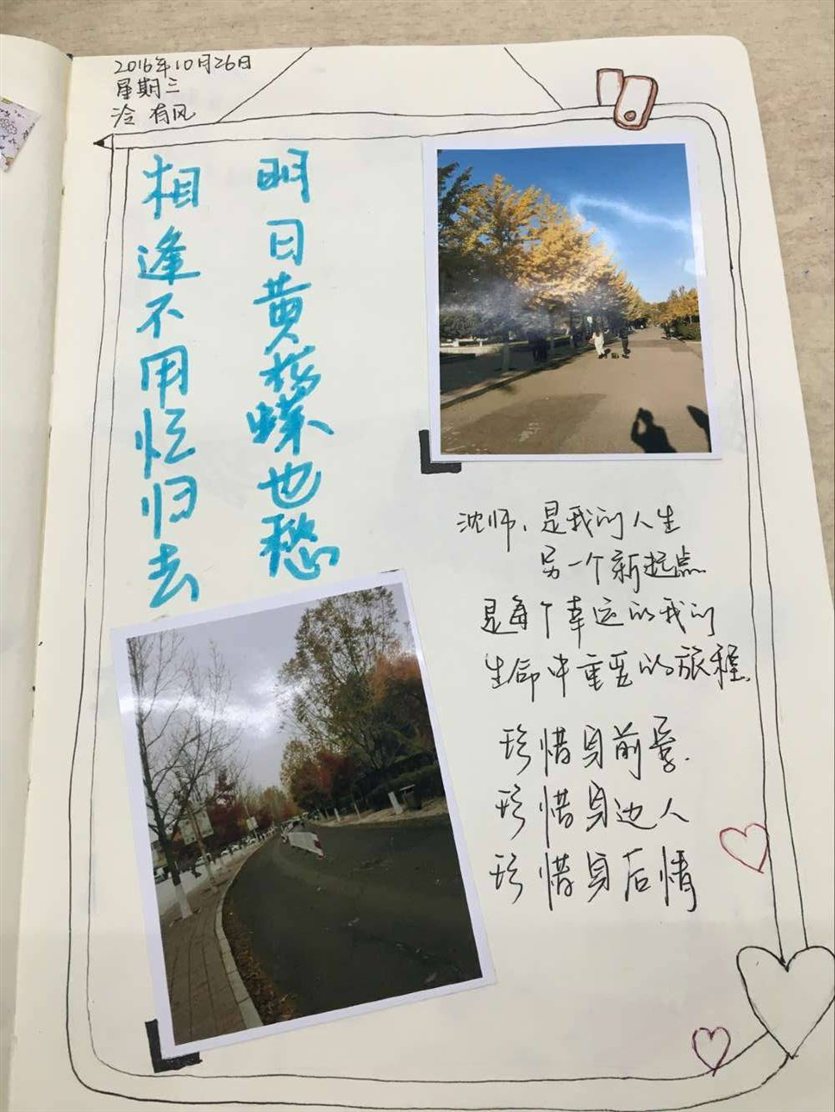 2016年10月26日
星期三
冷 有风
相逢不用忙归去
明日黄花蝶也愁
沈师、是我们人生
另一个新起点
是每个幸运的我们
生命中重要的旅程
珍惜身前景
珍惜身边人
珍惜身后情